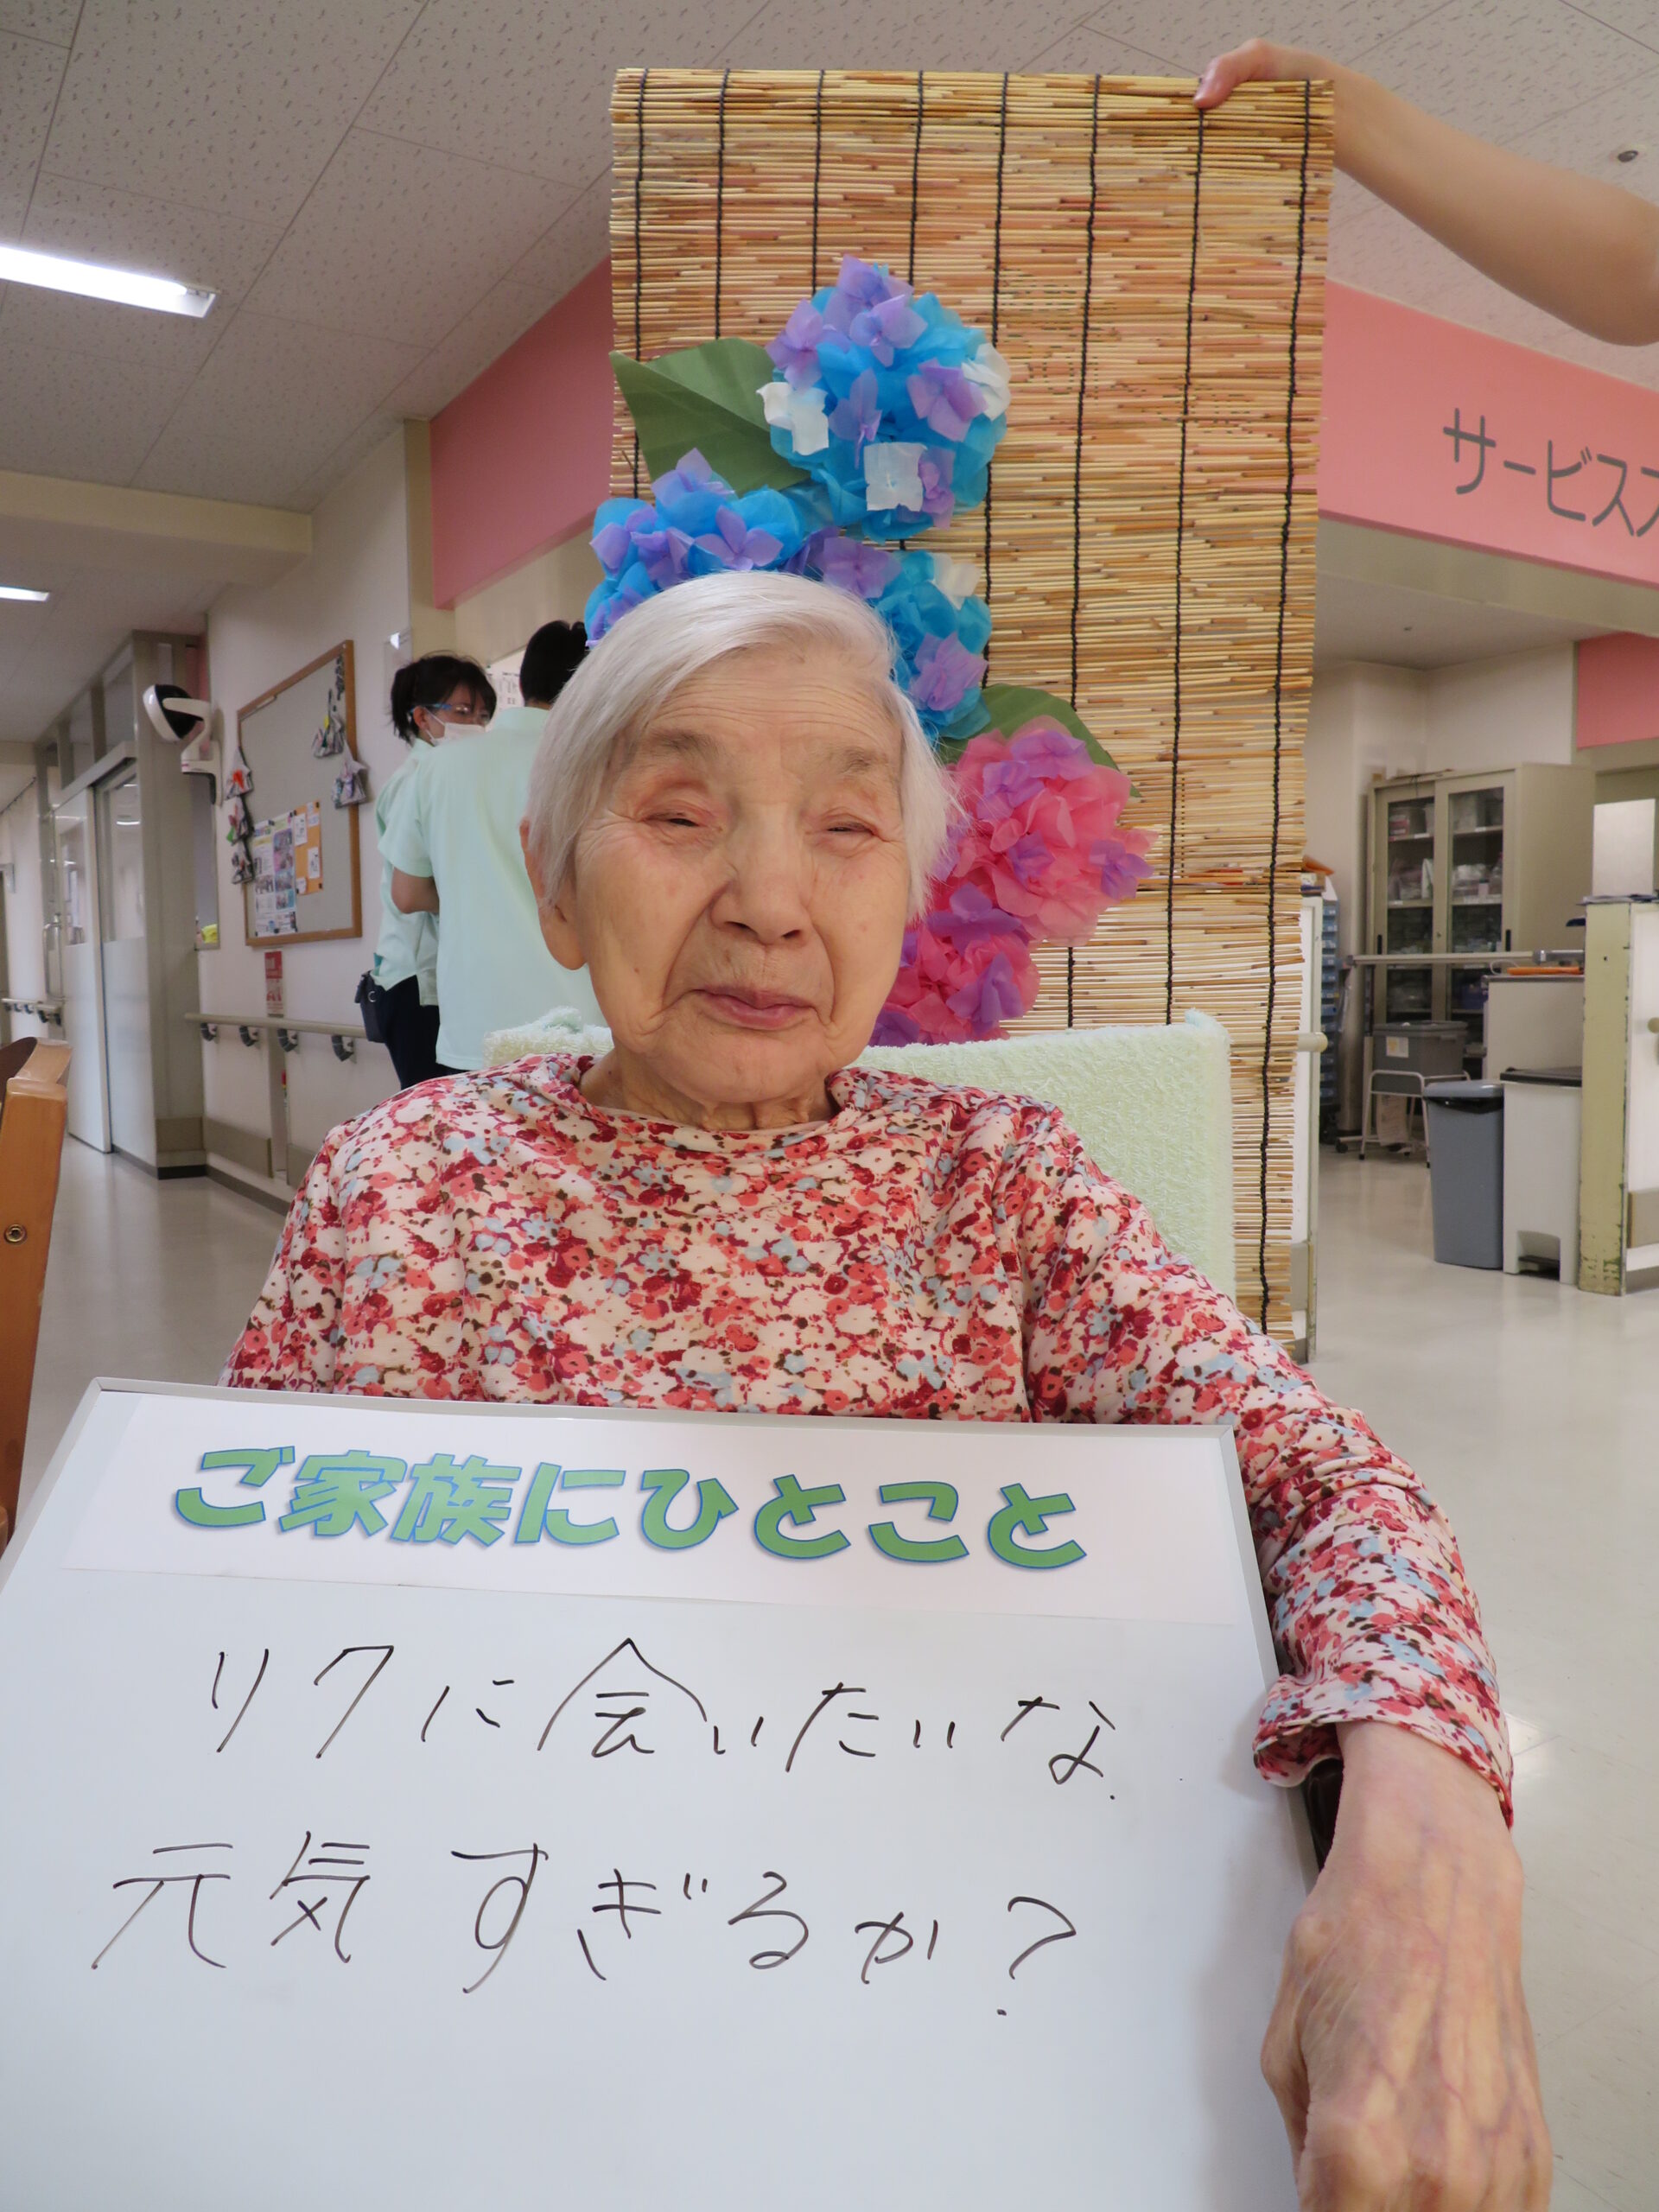 サービスス
ご家族にひとこと
リクに会いたいな.
元気すぎるか?